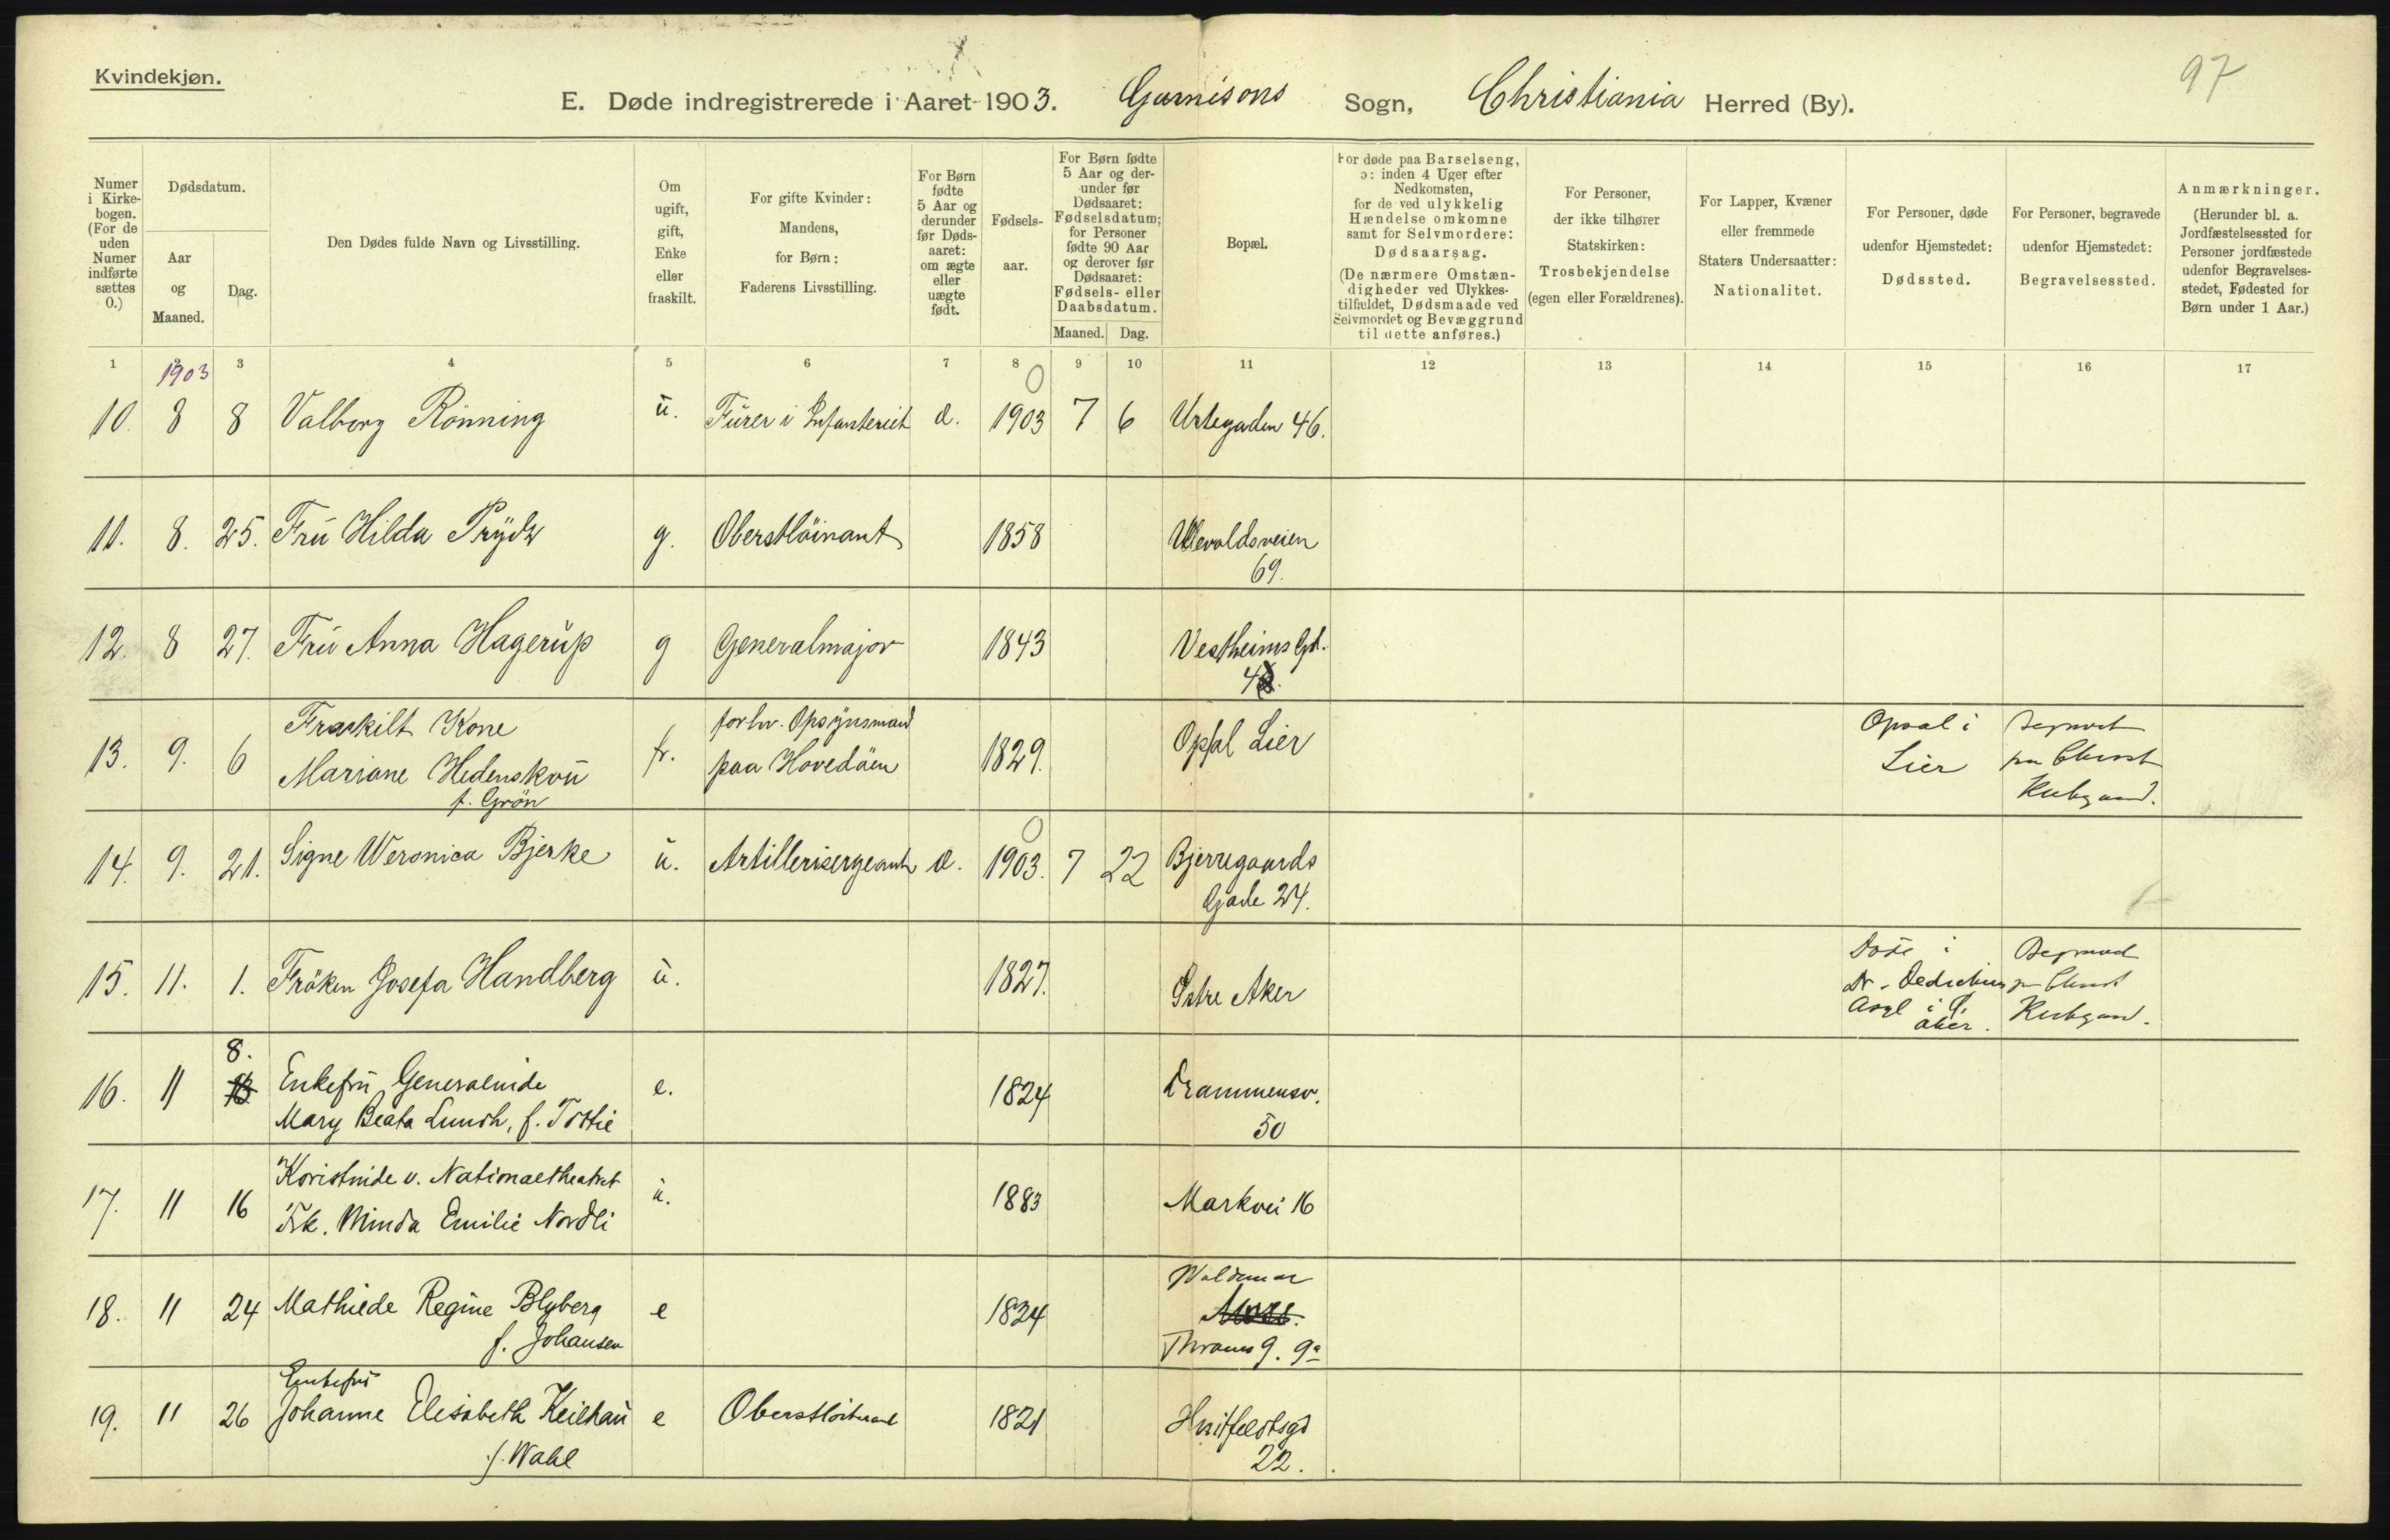 Kvindekjøn.
97
E. Døde indregistrerede i Aaret 1903. Garnisons Sogn, Christiania Herred (By).
Numer i Kirkebogen. (For de uden Numer indførte sættes 0.)
Dødsdatum.
Aar og Maaned.
Dag.
Den Dødes fulde Navn og Livsstilling.
Om ugift, gift, Enke eller fraskilt.
For gifte Kvinder: Mandens, for Børn: Faderens Livsstilling.
For Børn fødte 5 Aar og derunder før Dødsaaret: om ægte eller uægte født.
Fødselsaar.
For Børn fødte 5 Aar og derunder før Dødsaaret: Fødselsdatum; for Personer fødte 90 Aar og derover før Dødsaaret: Fødsels- eller Daabsdatum.
Maaned. Dag.
Bopæl.
For døde paa Barselseng, ɔ: inden 4 Uger efter Nedkomsten, for de ved ulykkelig Hændelse omkomne samt for Selvmordere: Dødsaarsag. (De nærmere Omstændigheder ved Ulykkestilfældet, Dødsmaade ved Selvmordet og Bevæggrund til dette anføres.)
For Personer, der ikke tilhører Statskirken: Trosbekjendelse (egen eller Forældrenes).
For Lapper, Kvæner eller fremmede Staters Undersaatter: Nationalitet.
For Personer, døde udenfor Hjemstedet: Dødssted.
For Personer, begravede udenfor Hjemstedet: Begravelsessted.
Anmærkninger. (Herunder bl. a. Jordfæstelsessted for Personer jordfæstede udenfor Begravelsesstedet, Fødested for Børn under 1 Aar.)
1 2 3 4 5 6 7 8 9 10 11 12 13 14 15 16 17
1903
10. 8 8 Valborg Rönning u. Furer i Infanteriet d. 1903 7 6 Urtegaden 46.
0
11. 8. 25. Fru Hilda Prydz g. Oberstlöinant 1858 Ullevoldsveien
69.
12. 8 27. Fru Anna Hagerup g Generalmajor 1843 Vestheims Gd.
13. 9. 6 Fraskilt Kone
Mariane Hedenskou
f. Grön
fr. forhv. Opsynsmand
paa Hovedöen
1829. Opsal Lier
Opsal i
Lier
Begravet
paa Christ
Kirkegaard.
14. 9. 21. Signe Weronica Bjerke u. Artillerisergeant d. 1903. 7 22 Bjerregaards
Gade 24.
0
15. 11. 1. Fröken Josefa Handberg u. 1827. Östre Aker
Döde i
Dr. Dedichens
Asyl i Ö.
Aker.
Begravet
paa Christ
Kirkegaard.
16. 11 8. Enkefru Generalinde
Mary Beata Lundh, f. Tostie
e. 1824 Drammensv.
50
17. 11 16 Koristinde v. Nationaltheatret
Frk. Minda Emilie Nordli
u. 1883 Markvei 16
18. 11 24 Mathilde Regine Blyberg
f. Johansen
e 1824 Waldemar
Thranes g. 9a
19. 11 26 Enkefru
Johanne Elisabeth Keilhau
f. Wahl
e Oberstlöitnant 1821 Hvitfeldtsgd
22.